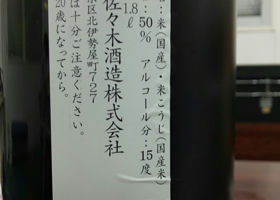 名：米(国産)・米こうじ(国産米)
：50% アルコール分：15度
1.8ℓ
佐々木酒造株式会社
京区北伊勢屋町727
は十分ご注意ください。
20歳になってから。